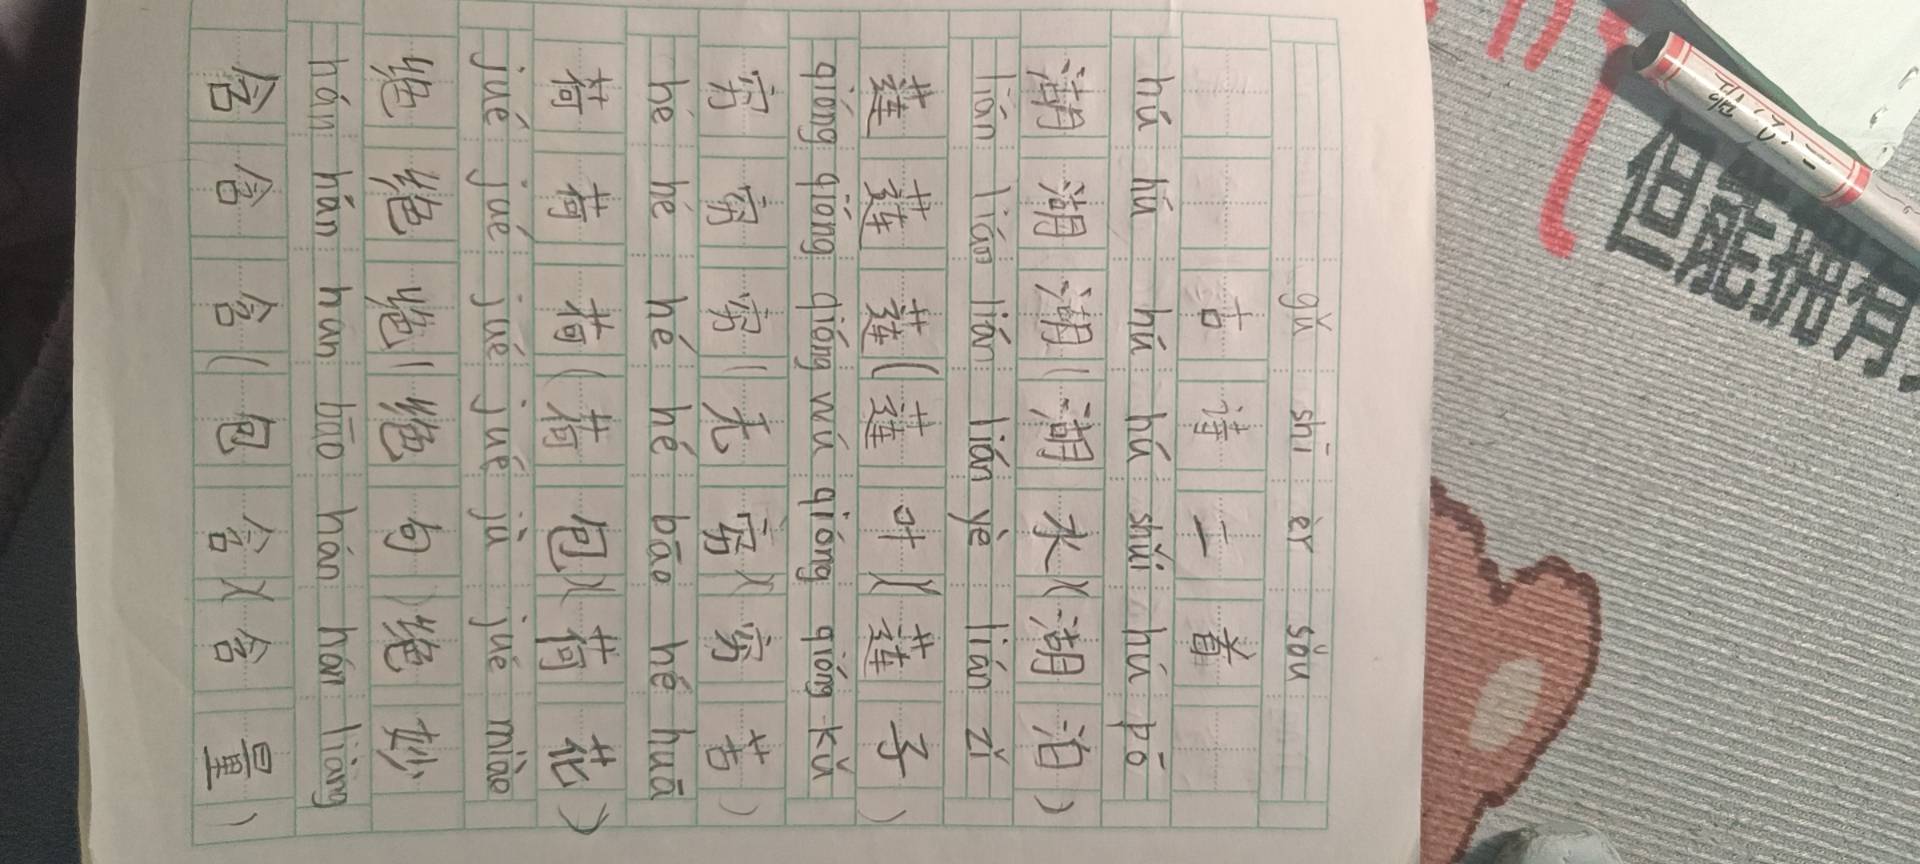 gǔ shī èr sǒu
古诗二首
hú hú hú hú shúi hú pō
湖湖湖(湖水)(湖泊)
lián lián lián lián yè lián zǐ
莲莲莲(莲叶)(莲子)
qióng qióng qióng wú qióng qióng kǔ
穷穷穷(无穷)(穷苦)
hé hé hé hé bāo hé huā
荷荷荷(荷包)(荷花)
jué jué jué jué jù jué miào
绝绝绝(绝句)绝妙
hán hán hán bāo hán hán liàng
含含含(包含)(含量)
但能拥有